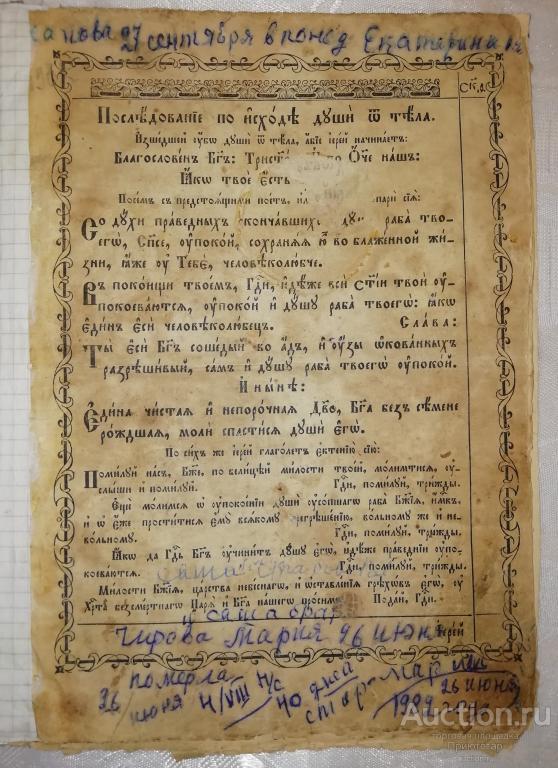 27 сентября в понед Екатерина
Послѣ́дованїе по и҆схо́дѣ дꙋшѝ ѿ тѣ́ла.
И҆зше́дшей ᲂу҆́бѡ дꙋшѝ ѿ тѣ́ла, а҆́бїе і҆ере́й начина́етъ:
Блгⷭ҇ве́нъ бг҃ъ: О҆́ч҃е на́шъ:
Ꙗ҆́кѡ твоѐ є҆́сть
Посе́мъ съ предстоѧ́щими пое́тъ, тропарѝ сїѧ̑:
Со дꙋ́хи пра́ведныхъ сконча́вшихсѧ дꙋ́шꙋ раба̀ тво-
егѡ̀, сп҃се, ᲂу҆поко́й, сохранѧ́ѧ ю҆̀ во бл҃же́нной жи́-
зни, ꙗ҆́же ᲂу҆ тебѐ, человѣколю́бче.
Въ поко́ищи твое́мъ, гдⷭ҇и, и҆дѣ́же всѝ ст҃і́и твоѝ ᲂу҆-
покоева́ютсѧ, ᲂу҆поко́й и҆ дꙋ́шꙋ раба̀ твоегѡ̀: ꙗ҆́кѡ
є҆ди́нъ є҆сѝ человѣколю́бецъ. Сла́ва:
Ты̀ є҆сѝ бг҃ъ соше́дый во а҆́дъ, и҆ ᲂу҆́зы ѡ҆кова́нныхъ
разрѣши́вый, са́мъ и҆ дꙋ́шꙋ раба̀ твоегѡ̀ ᲂу҆поко́й.
И҆ ны́нѣ:
Е҆ди́на чи́стаѧ и҆ непоро́чнаѧ дв҃о, бг҃а без̾ сѣ́мене
ро́ждшаѧ, молѝ спасти́сѧ дꙋшѝ є҆гѡ̀.
По си́хъ же і҆ере́й глаго́летъ є҆ктенїю̀ сїю̀:
Поми́лꙋй на́съ, бж҃е, по вели́цѣй ми́лости твое́й, мо́лимтисѧ, ᲂу҆-
слы́ши и҆ поми́лꙋй. Гдⷭ҇и, поми́лꙋй, три́жды.
Е҆щѐ мо́лимсѧ ѡ҆ ᲂу҆покое́нїи дꙋшѝ ᲂу҆со́пшагѡ раба̀ бж҃їѧ, и҆́мⷬ҇къ,
и҆ ѡ҆ є҆́же прости́тисѧ є҆мꙋ̀ всѧ́комꙋ прегрѣше́нїю, во́льномꙋ же и҆ не-
во́льномꙋ. Гдⷭ҇и, поми́лꙋй, три́жды.
Ꙗ҆́кѡ да гдⷭ҇ь бг҃ъ ᲂу҆чини́тъ дꙋ́шꙋ є҆гѡ̀, и҆дѣ́же пра́веднїи ᲂу҆по-
кое́ваютсѧ. Гдⷭ҇и, поми́лꙋй, три́жды.
Ми́лости бж҃їѧ, црⷭ҇тва нбⷭ҇нагѡ, и҆ ѡ҆ставле́нїѧ грѣхѡ́въ є҆гѡ̀, ᲂу҆
хрⷭ҇та̀ безсме́ртнагѡ царѧ̀ и҆ бг҃а на́шегѡ про́симъ. Пода́й, гдⷭ҇и.
І҆ере́й
Чирова Мария 26 июня
померла
26 июня 4/VIII Ч/с 40 дней
26 июня
1989
Auction.ru
торговая площадка